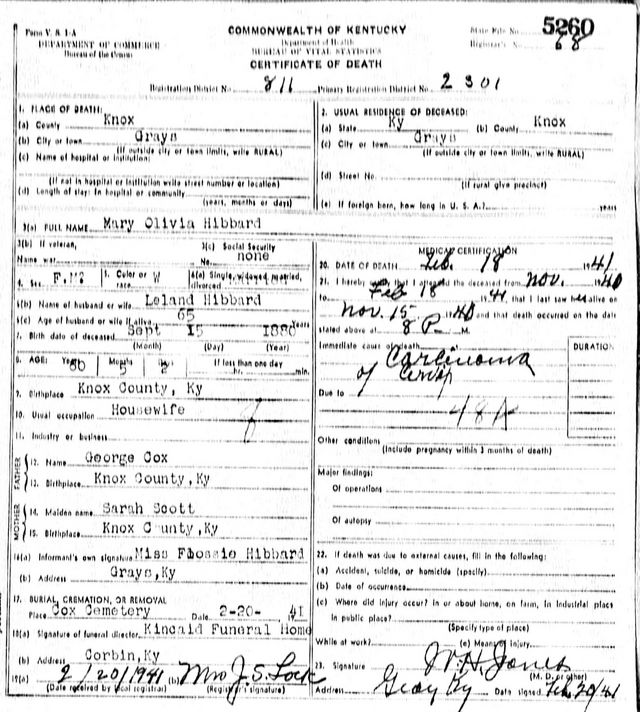 Form V. S. 1-A
DEPARTMENT OF COMMERCE
Bureau of the Census
COMMONWEALTH OF KENTUCKY
Department of Health
BUREAU OF VITAL STATISTICS
CERTIFICATE OF DEATH
State File No. 5260
Registrar's No. 68
Registration District No. 811 Primary Registration District No. 2301
1. PLACE OF DEATH:
(a) County Knox
(b) City or town Grays
(If outside city or town limits, write RURAL)
(c) Name of hospital or institution:
(If not in hospital or institution write street number or location)
(d) Length of stay: In hospital or community
(years, months or days)
2. USUAL RESIDENCE OF DECEASED:
(a) State Ky (b) County Knox
(c) City or town Grays
(If outside city or town limits, write RURAL)
(d) Street No.
(If rural give precinct)
(e) If foreign born, how long in U. S. A.? years
3(a) FULL NAME Mary Olivia Hibbard
3(b) If veteran,
Name war
3(c) Social Security
No. none
4. Sex F. 5. Color or W 6(a) Single, widowed, married,
divorced
6(b) Name of husband or wife Leland Hibbard
6(c) Age of husband or wife if alive 65 Years
7. Birth date of deceased Sept 15
(Month) (Day) (Year)
8. AGE: Years Months 5 Days If less than one day
hr. min.
9. Birthplace Knox County, Ky
10. Usual occupation Housewife
11. Industry or business
FATHER
12. Name George Cox
13. Birthplace Knox County,Ky
MOTHER
14. Maiden name Sarah Scott
15. Birthplace Knox County,Ky
16(a) Informant's own signature Miss Flossie Hibbard
(b) Address Grays,Ky
17. BURIAL, CREMATION, OR REMOVAL
Place Cox Cemetery Date 2-20- 41
18(a) Signature of funeral director Kincaid Funeral Home
(b) Address Corbin,Ky
19(a) 2/20/1941 (b) Mrs J. S. Lock
(Date received by local registrar) (Registrar's signature)
MEDICAL CERTIFICATION
20. DATE OF DEATH Feb. 18 1941
21. I hereby certify, that I attended the deceased from Nov. 1940
Feb 18 1941, that I last saw h alive on
Nov. 15 1940 and that death occurred on the date
stated above at 8 P M.
Immediate cause of death Carcinoma
of
DURATION
Due to
48A
Other conditions
(Include pregnancy within 3 months of death)
Major findings:
Of operations
Of autopsy
22. If death was due to external causes, fill in the following:
(a) Accident, suicide, or homicide (specify)
(b) Date of occurrence
(c) Where did injury occur? In or about home, on farm, in industrial place
in public place?
(Specify type of place)
While at work? (e) Means of injury
23. Signature W. H. Jones
(M. D. or other)
Address Gray Ky Date signed Feb 20/41